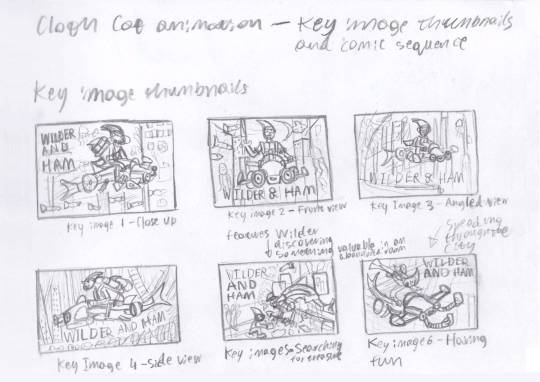 Clash Cat animation - Key image thumbnails
and comic sequence
Key image thumbnails
WILDER
AND
HAM
WILDER & HAM
WILDER & HAM
Key image 1 - Close up
Key image 2 - Front view
Key Image 3 - Angled view
features Wilder
discovering
something valuable in an
abandoned room
speeding
through the
city
WILDER AND HAM
WILDER
AND
HAM
WILDER
AND HAM
Key Image 4 - side view
Key image 5 - Searching
for treasure
Key image 6 - Having
fun